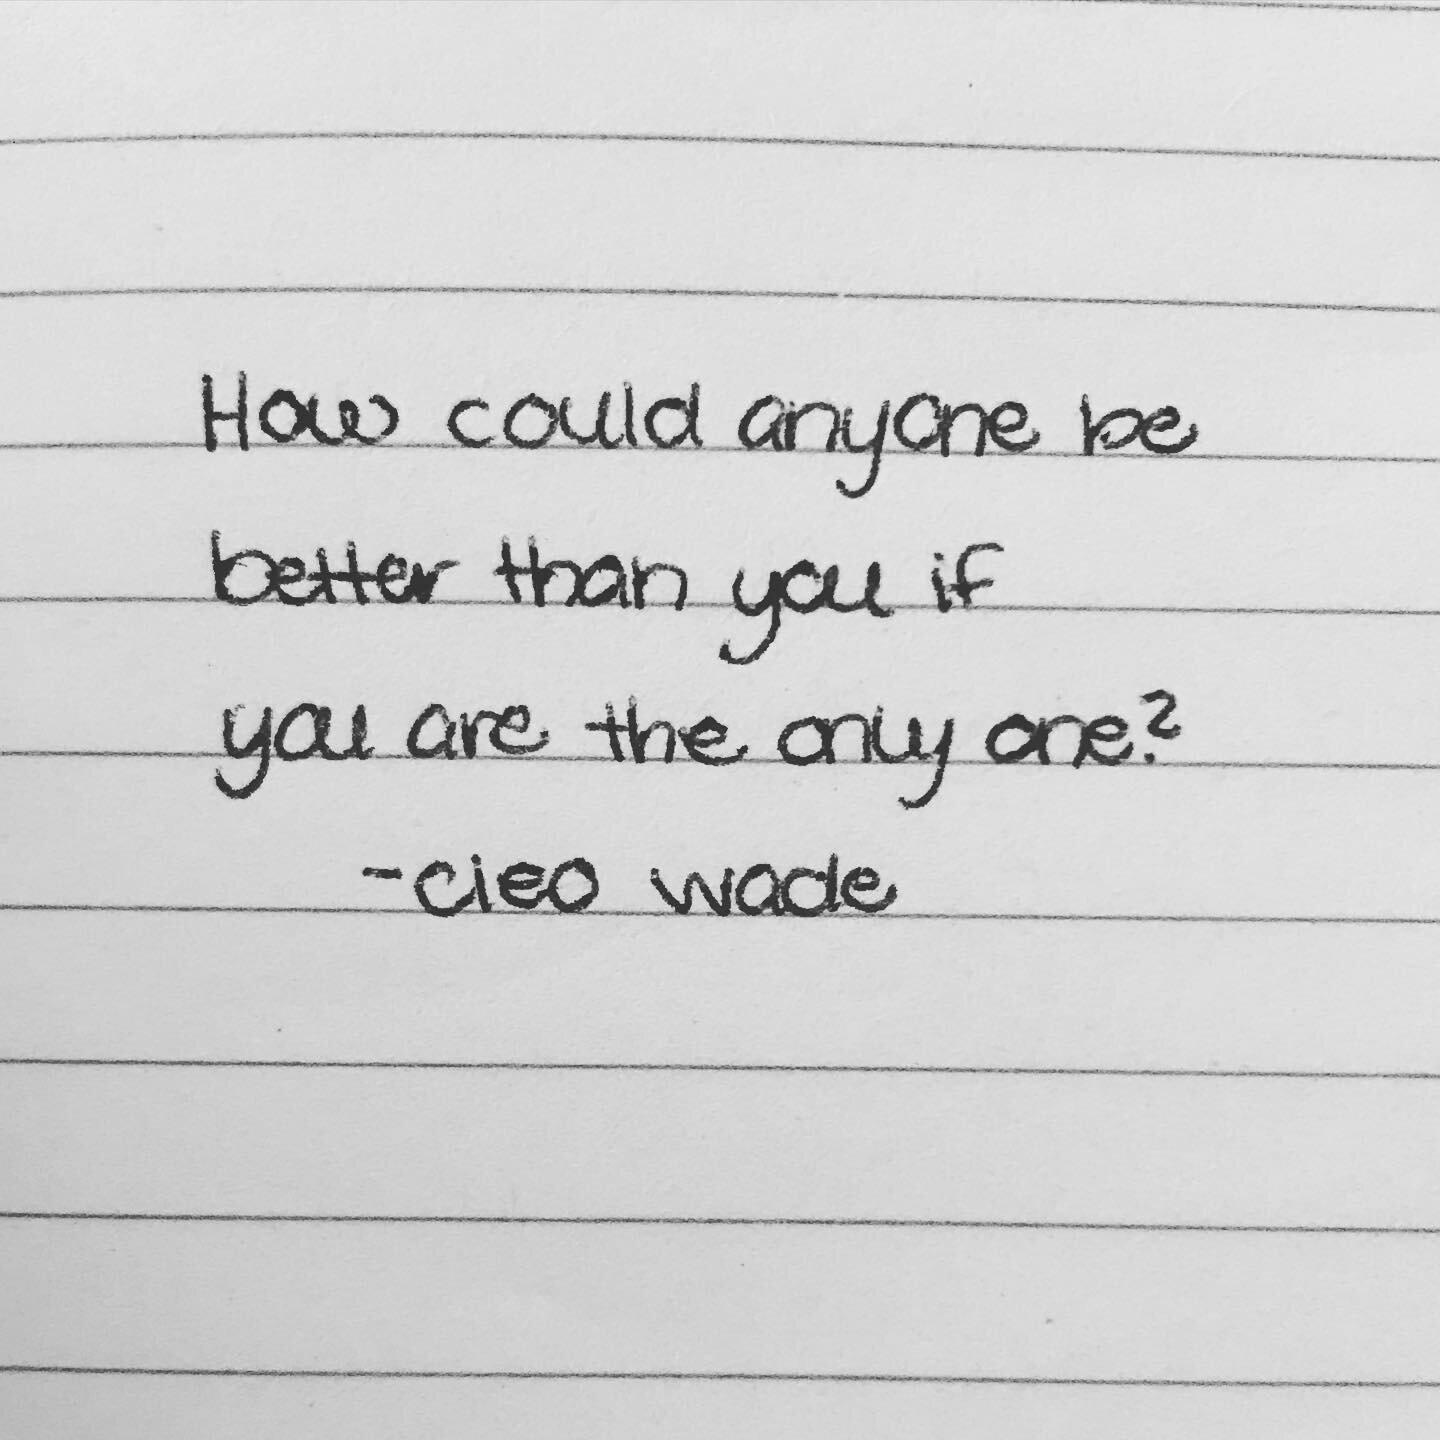 How could anyone be
better than you if
you are the only one?
-cleo wade